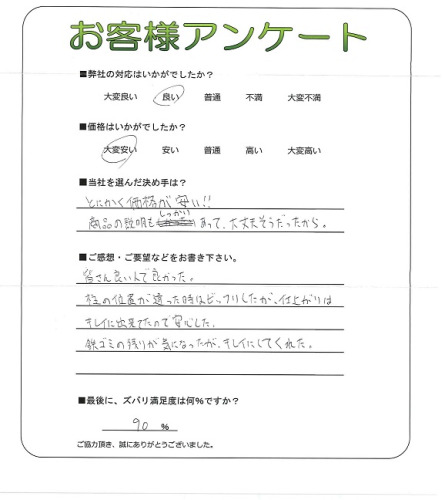 お客様アンケート
■弊社の対応はいかがでしたか？
大変良い 良い 普通 不満 大変不満
■価格はいかがでしたか？
大変安い 安い 普通 高い 大変高い
■当社を選んだ決め手は？
とにかく価格が安い!!
商品の説明も しっかり あって、大丈夫そうだったから。
■ご感想・ご要望などをお書き下さい。
皆さん良い人で良かった。
柱の位置が違った時はビックリしたが、仕上がりは
キレイに出来てたので安心した。
鉄ゴミの残りが気になったが、キレイにしてくれた。
■最後に、ズバリ満足度は何％ですか？
90 ％
ご協力頂き、誠にありがとうございました。